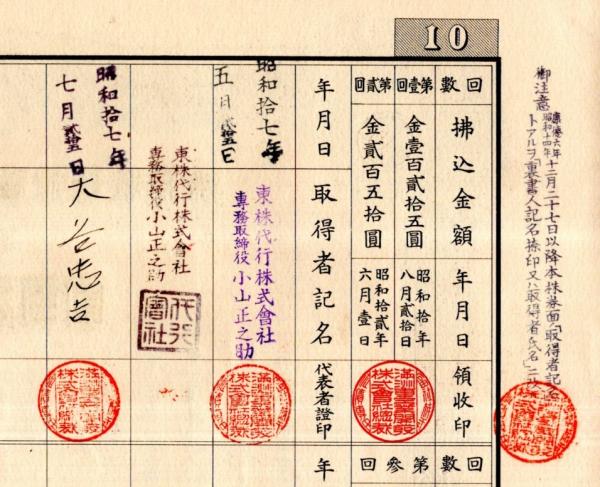 10
御注意 康德六年昭和十四年十二月二十七日以降本株券面ノ「取得者記名」
トアルヲ「裏書人記名捺印又ハ取得者氏名」ニ
回數 拂込金額 年月日 領收印 回數
第壹回 金壹百貳拾五圓 昭和拾年八月貳拾日
第貳回 金貳百五拾圓 昭和拾貳年六月壹日
第參回
年月日 取得者記名 代表者證印 年
昭和拾七年
五月貳拾五日
東株代行株式會社
專務取締役 小山正之助
東株代行株式會社
專務取締役 小山正之助
代行會社
昭和拾七年
七月貳拾五日
大谷忠吉